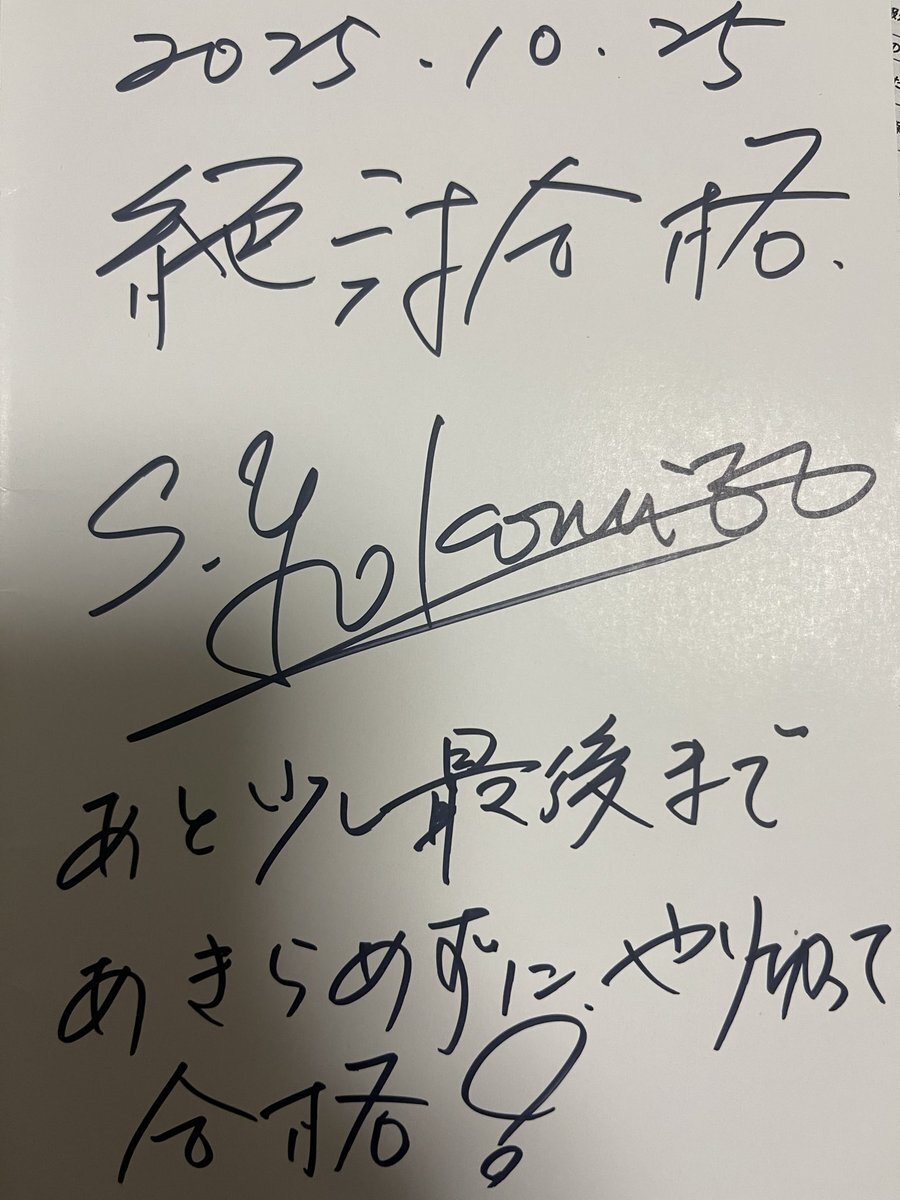 2025.10.25
絶対合格.
S. Yokomizo
あと少し最後まで
あきらめずに、やり切って
合格!